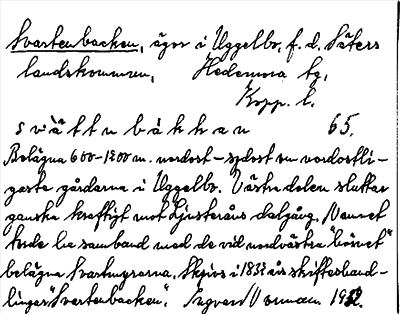 Svartenbacken, ägor i Uggelbo, f. d. Säters
landskommun, Hedemora tg,
Kopp. l.
svàttnbàkkan 65.
Belägna 600-1200 m. nordost – sydost om nordostli-
gaste gårdarna i Uggelbo. Västra delen sluttar
ganska kraftigt mot Ljusteråns dalgång. Namnet
torde ha samband med de vid nordvästra "hörnet"
belägna Svartmyrorna. Skrivs i 1832 års skifteshand-
lingar "Svartenbacken". Ingvar Norman 19